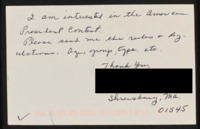 I am interested in the American
President Contest.
Please send me the rules & reg-
ulations. Age, group, type etc.
Thank You
Shrewsbury, Ma.
01545